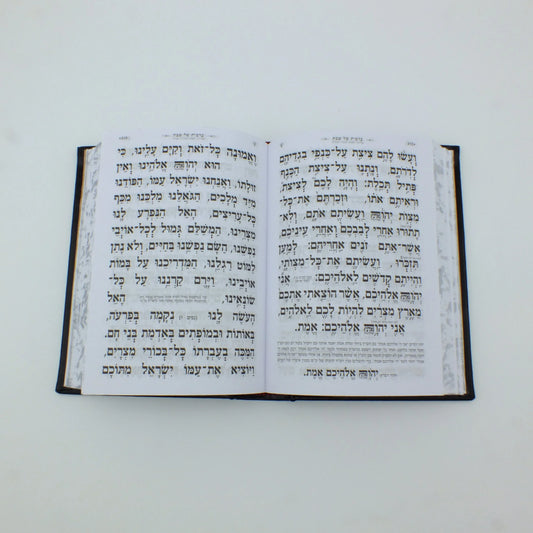 ערבית של שבת
וְעָשׂוּ לָהֶם צִיצִת עַל־כַּנְפֵי בִגְדֵיהֶם
לְדֹרֹתָם, וְנָתְנוּ עַל־צִיצִת הַכָּנָף,
פְּתִיל תְּכֵלֶת: וְהָיָה לָכֶם לְצִיצִת,
וּרְאִיתֶם אֹתוֹ, וּזְכַרְתֶּם אֶת־כָּל־
מִצְוֹת יְהֹוָה וַעֲשִׂיתֶם אֹתָם, וְלֹא־
תָתוּרוּ אַחֲרֵי לְבַבְכֶם וְאַחֲרֵי עֵינֵיכֶם,
אֲשֶׁר־אַתֶּם זֹנִים אַחֲרֵיהֶם: לְמַעַן
תִּזְכְּרוּ, וַעֲשִׂיתֶם אֶת־כָּל־מִצְוֹתָי,
וִהְיִיתֶם קְדֹשִׁים לֵאלֹהֵיכֶם: אֲנִי
יְהֹוָה אֱלֹהֵיכֶם, אֲשֶׁר הוֹצֵאתִי אֶתְכֶם
מֵאֶרֶץ מִצְרַיִם לִהְיוֹת לָכֶם לֵאלֹהִים,
אֲנִי יְהֹוָה אֱלֹהֵיכֶם: אֱמֶת.
יְהֹוָה אֱלֹהֵיכֶם אֱמֶת.
ערבית של שבת
וֶאֱמוּנָה כָּל־זֹאת וְקַיָּם עָלֵינוּ, כִּי
הוּא יְהֹוָה אֱלֹהֵינוּ וְאֵין
זוּלָתוֹ, וַאֲנַחְנוּ יִשְׂרָאֵל עַמּוֹ, הַפּוֹדֵנוּ
מִיַּד מְלָכִים, הַגּוֹאֲלֵנוּ מַלְכֵּנוּ מִכַּף
כָּל־עָרִיצִים, הָאֵל הַנִּפְרָע לָנוּ
מִצָּרֵינוּ, הַמְשַׁלֵּם גְּמוּל לְכָל־אוֹיְבֵי
נַפְשֵׁנוּ, הַשָּׂם נַפְשֵׁנוּ בַּחַיִּים, וְלֹא נָתַן
לַמּוֹט רַגְלֵנוּ, הַמַּדְרִיכֵנוּ עַל בָּמוֹת
אוֹיְבֵינוּ, וַיָּרֶם קַרְנֵנוּ עַל כָּל־
שׂוֹנְאֵינוּ, הָאֵל
הָעֹשֶׂה לָּנוּ נְקָמָה בְּפַרְעֹה,
בְּאוֹתוֹת וּבְמוֹפְתִים בְּאַדְמַת בְּנֵי חָם,
הַמַּכֶּה בְעֶבְרָתוֹ כָּל־בְּכוֹרֵי מִצְרָיִם,
וַיּוֹצִיא אֶת־עַמּוֹ יִשְׂרָאֵל מִתּוֹכָם